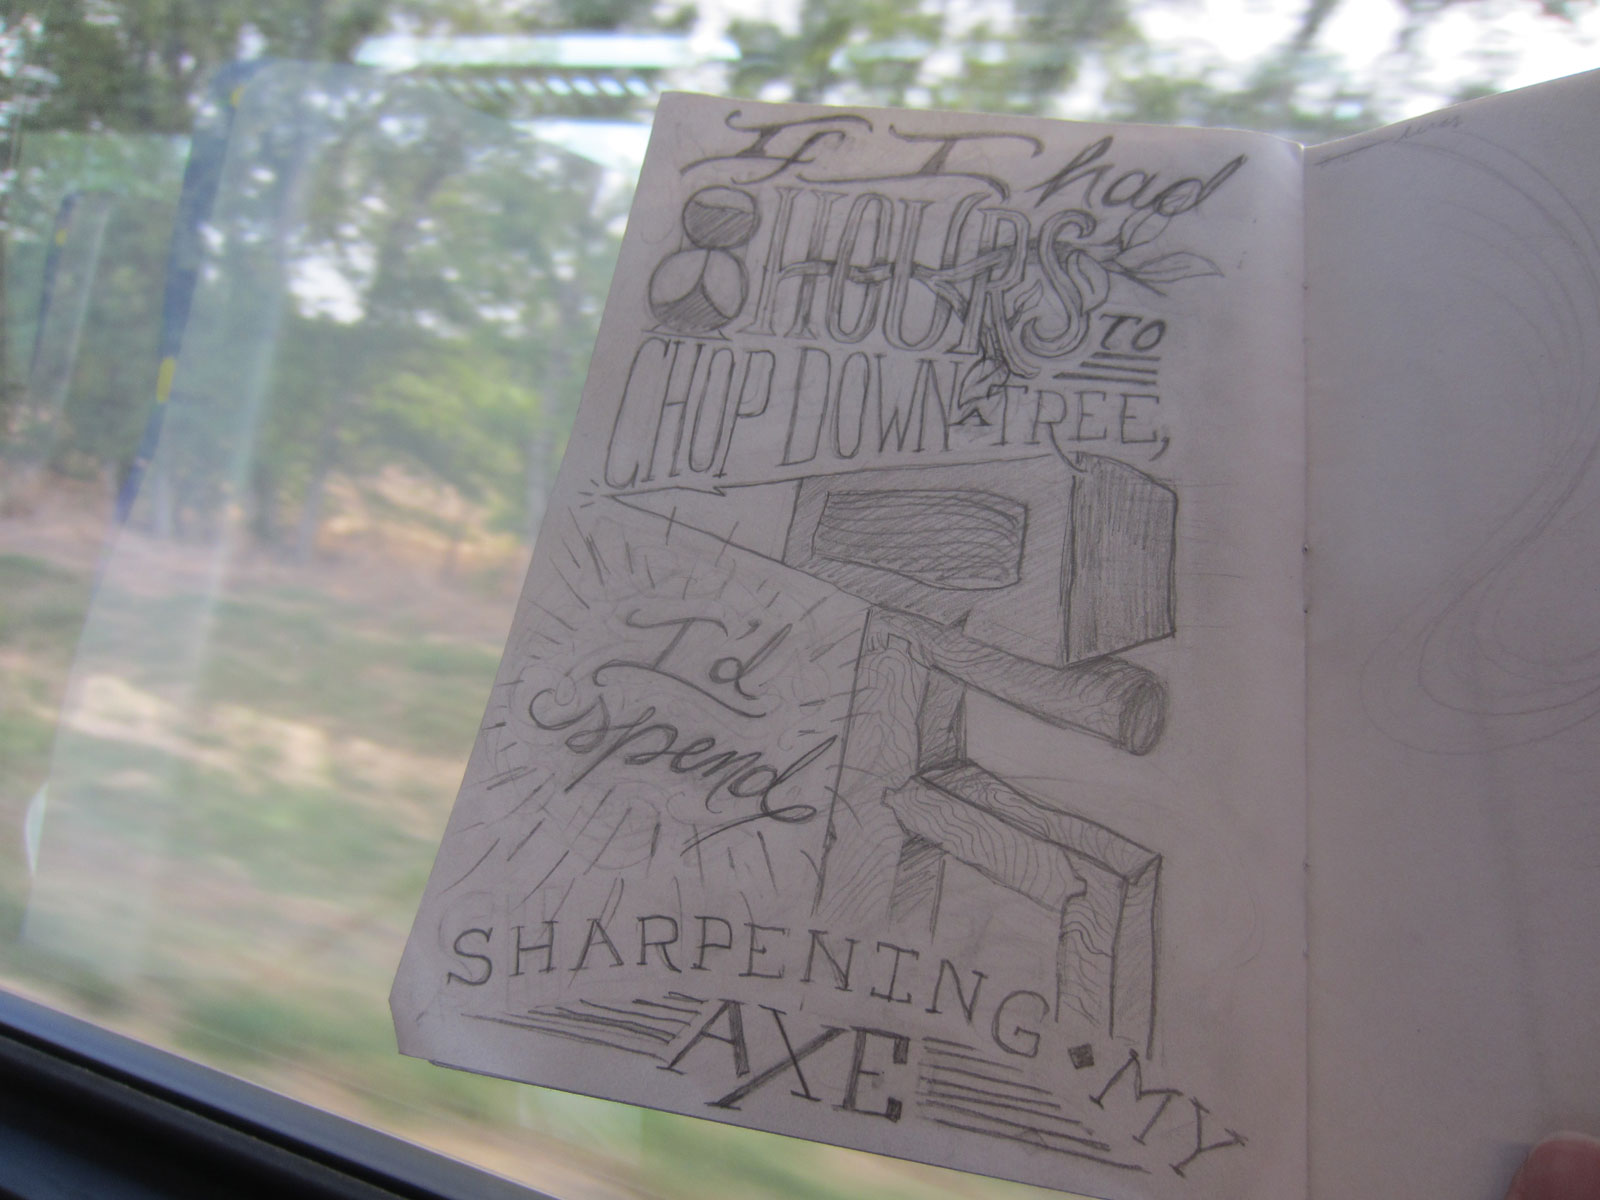 If I had
8 HOURS TO
CHOP DOWN A TREE,
I'd
spend
6
SHARPENING • MY
AXE